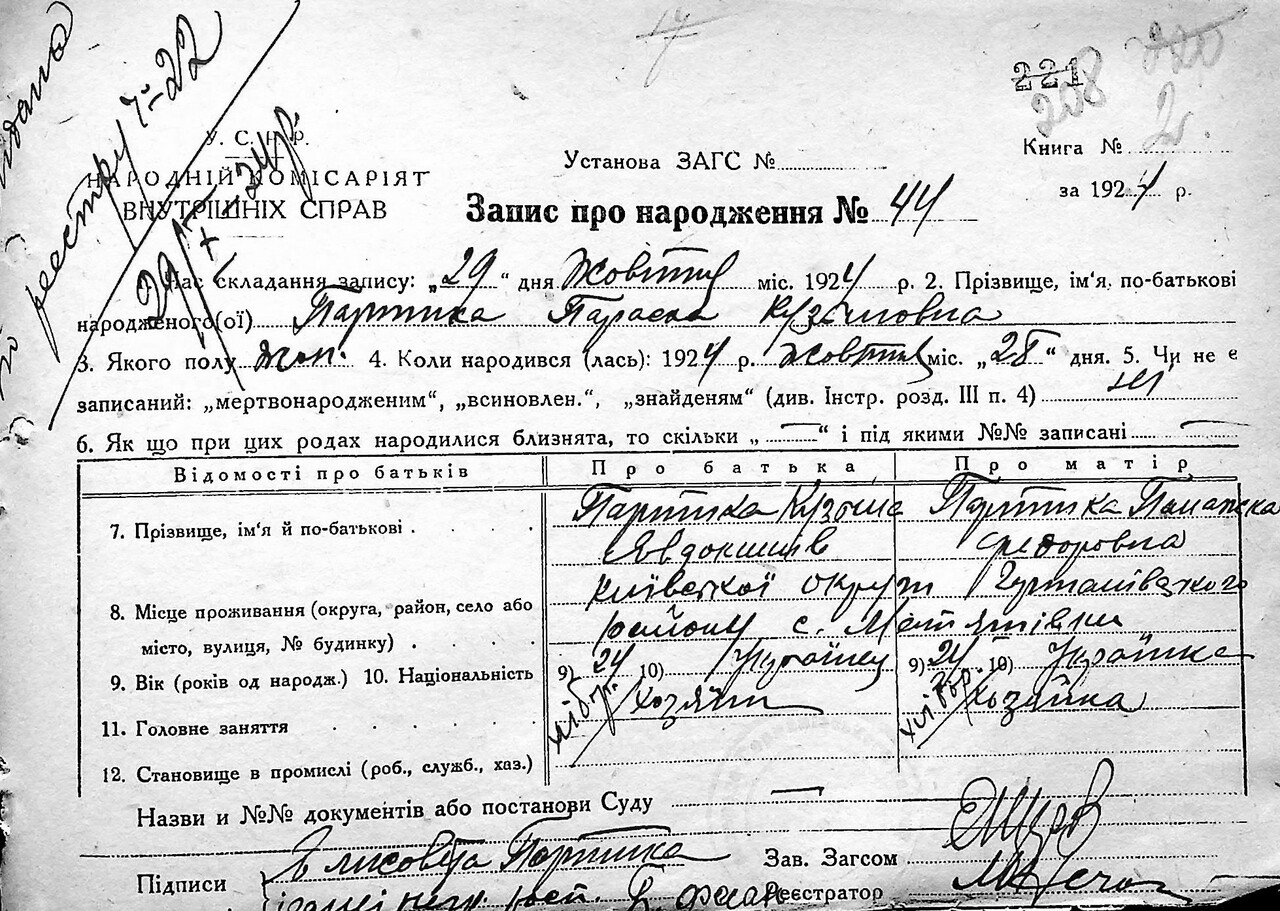 17
221
208
2.
реєстру
У. С. Р. Р.
НАРОДНІЙ КОМІСАРІЯТ
ВНУТРІШНІХ СПРАВ
Установа ЗАГС №
Книга №
за 1924 р.
Запис про народження № 44
1. Час складання запису: „29“ дня Жовтня міс. 1924 р. 2. Прізвище, ім'я, по-батькові
народженого(ої) Партика Параска Кузьмовна
3. Якого полу жін. 4. Коли народився (лась): 1924 р. Жовтня міс. „28“ дня. 5. Чи не є
записаний: „мертвонародженим“, „всиновлен.“, „знайденям“ (див. Інстр. розд. III п. 4) ні
6. Як що при цих родах народилися близнята, то скільки „—“ і під якими №№ записані —
Відомости про батьків Про батька Про матір
7. Прізвище, ім'я й по-батькові Партика Кузьма Партика
Явдокимів Федоровна
8. Місце проживання (округа, район, село або Київської округи
місто, вулиця, № будинку) району с.
9. Вік (років од народж.) 10. Національність 9) 24 10) Українец 9) 24 10) Українка
11. Головне заняття Хозяїн Хозяйка
12. Становище в промислі (роб., служб., хаз.)
Назви и №№ документів або постанови Суду —
Партика Зав. Загсом
Підписи Реєстратор